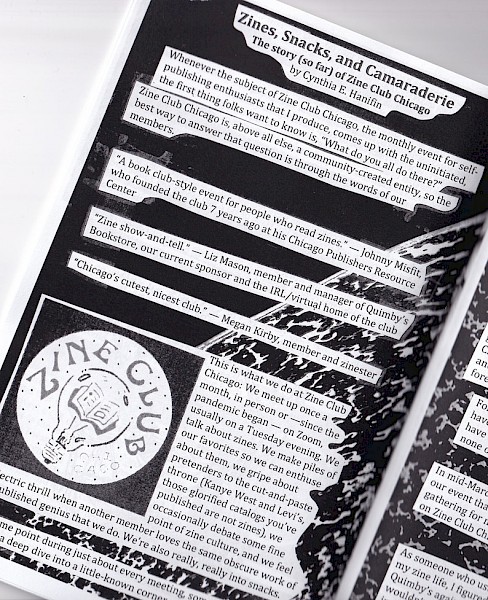 Zines, Snacks, and Camaraderie
The story (so far) of Zine Club Chicago
by Cynthia E. Hanifin
Whenever the subject of Zine Club Chicago, the monthly event for self-
publishing enthusiasts that I produce, comes up with the uninitiated,
the first thing folks want to know is, "What do you all do there?"
Zine Club Chicago is, above all else, a community-created entity, so the
best way to answer that question is through the words of our
members.
"A book club-style event for people who read zines." — Johnny Misfit,
who founded the club 7 years ago at his Chicago Publishers Resource
Center
"Zine show-and-tell." — Liz Mason, member and manager of Quimby's
Bookstore, our current sponsor and the IRL/virtual home of the club
"Chicago's cutest, nicest club." — Megan Kirby, member and zinester
ZINE CLUB
This is what we do at Zine Club
Chicago: We meet up once a
month, in person or —since the
pandemic began — on Zoom,
usually on a Tuesday evening. We
talk about zines. We make piles of
our favorites so we can enthuse
about them, we gripe about
pretenders to the cut-and-paste
throne (Kanye West and Levi's,
those glorified catalogs you've
published are not zines), we
occasionally debate some fine
point of zine culture, and we feel
ectric thrill when another member loves the same obscure work of
ublished genius that we do. We're also really, really into snacks.
me point during just about every meeting, som
a deep dive into a little-known corner
an
fore
For
have
none o
In mid-Marc
our event tha
gathering for
on Zine Club Ch
As someone who us
my zine life, I figured
Quimby's again
wouldn't